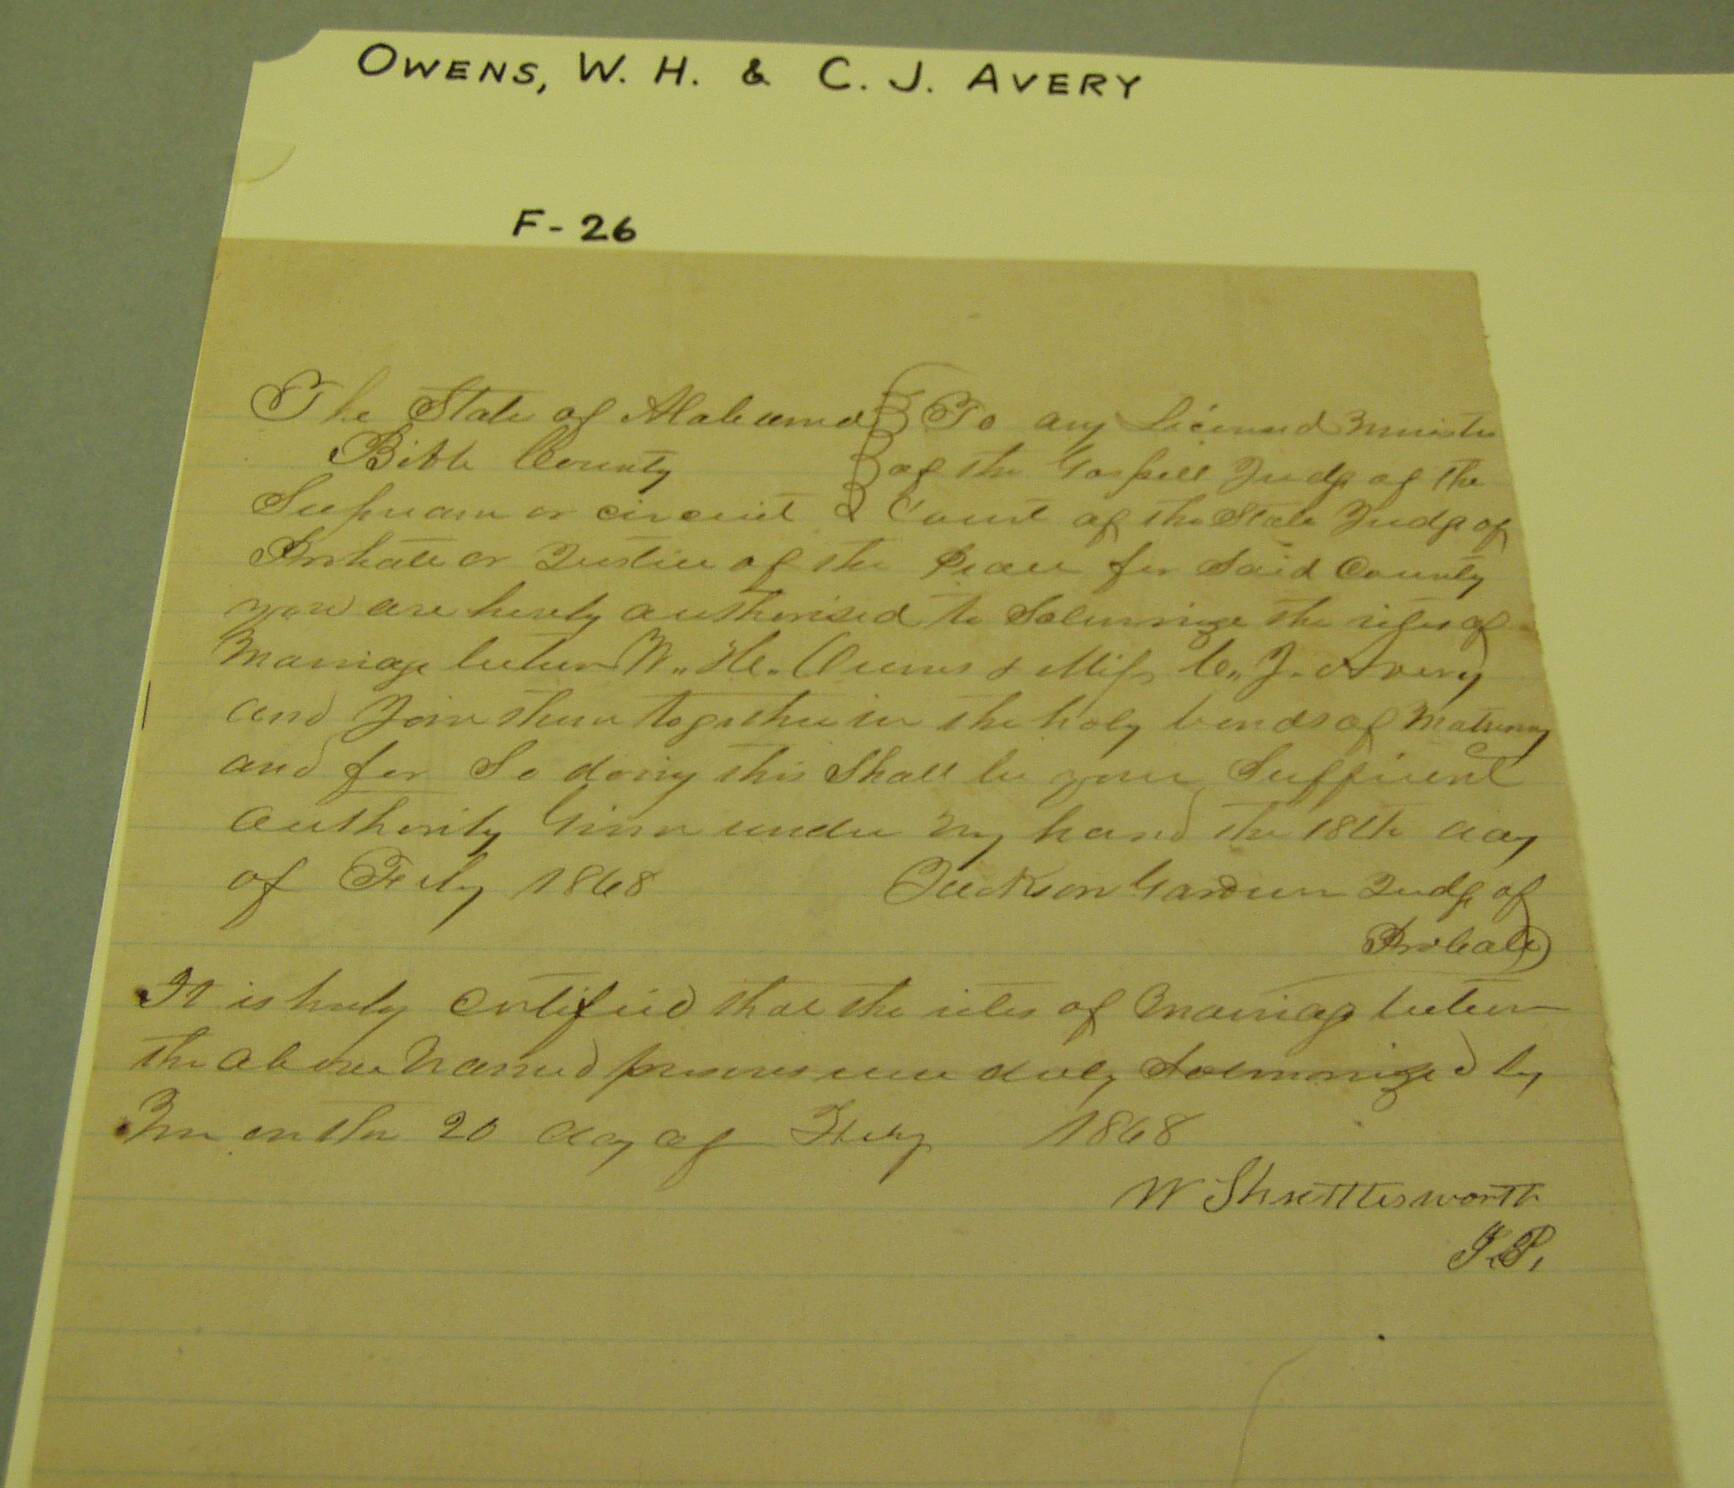 OWENS, W. H. & C. J. AVERY
F-26
The State of Alabama } To any Licensed Minister
Bibb County } of the Gospell Judge of the
Supream or circuit & Court of the State Judge of
Probate or Justice of the Peace for Said County
you are herby authorised to Solemnize the rites of
Marriage between W. H. Owens & Miss C. J. Avery
and Join them together in the holy bonds of Matrimony
and for So doing this Shall be your Sufficient
authority Given under my hand the 18th day
of Feby 1868 Jackson Gardner Judge of
Probate
It is herby certified that the rites of Marriage between
the above Named persons were duly Solemnized by
Me on the 20 day of Feby 1868
W Shuttlesworth
J.P.